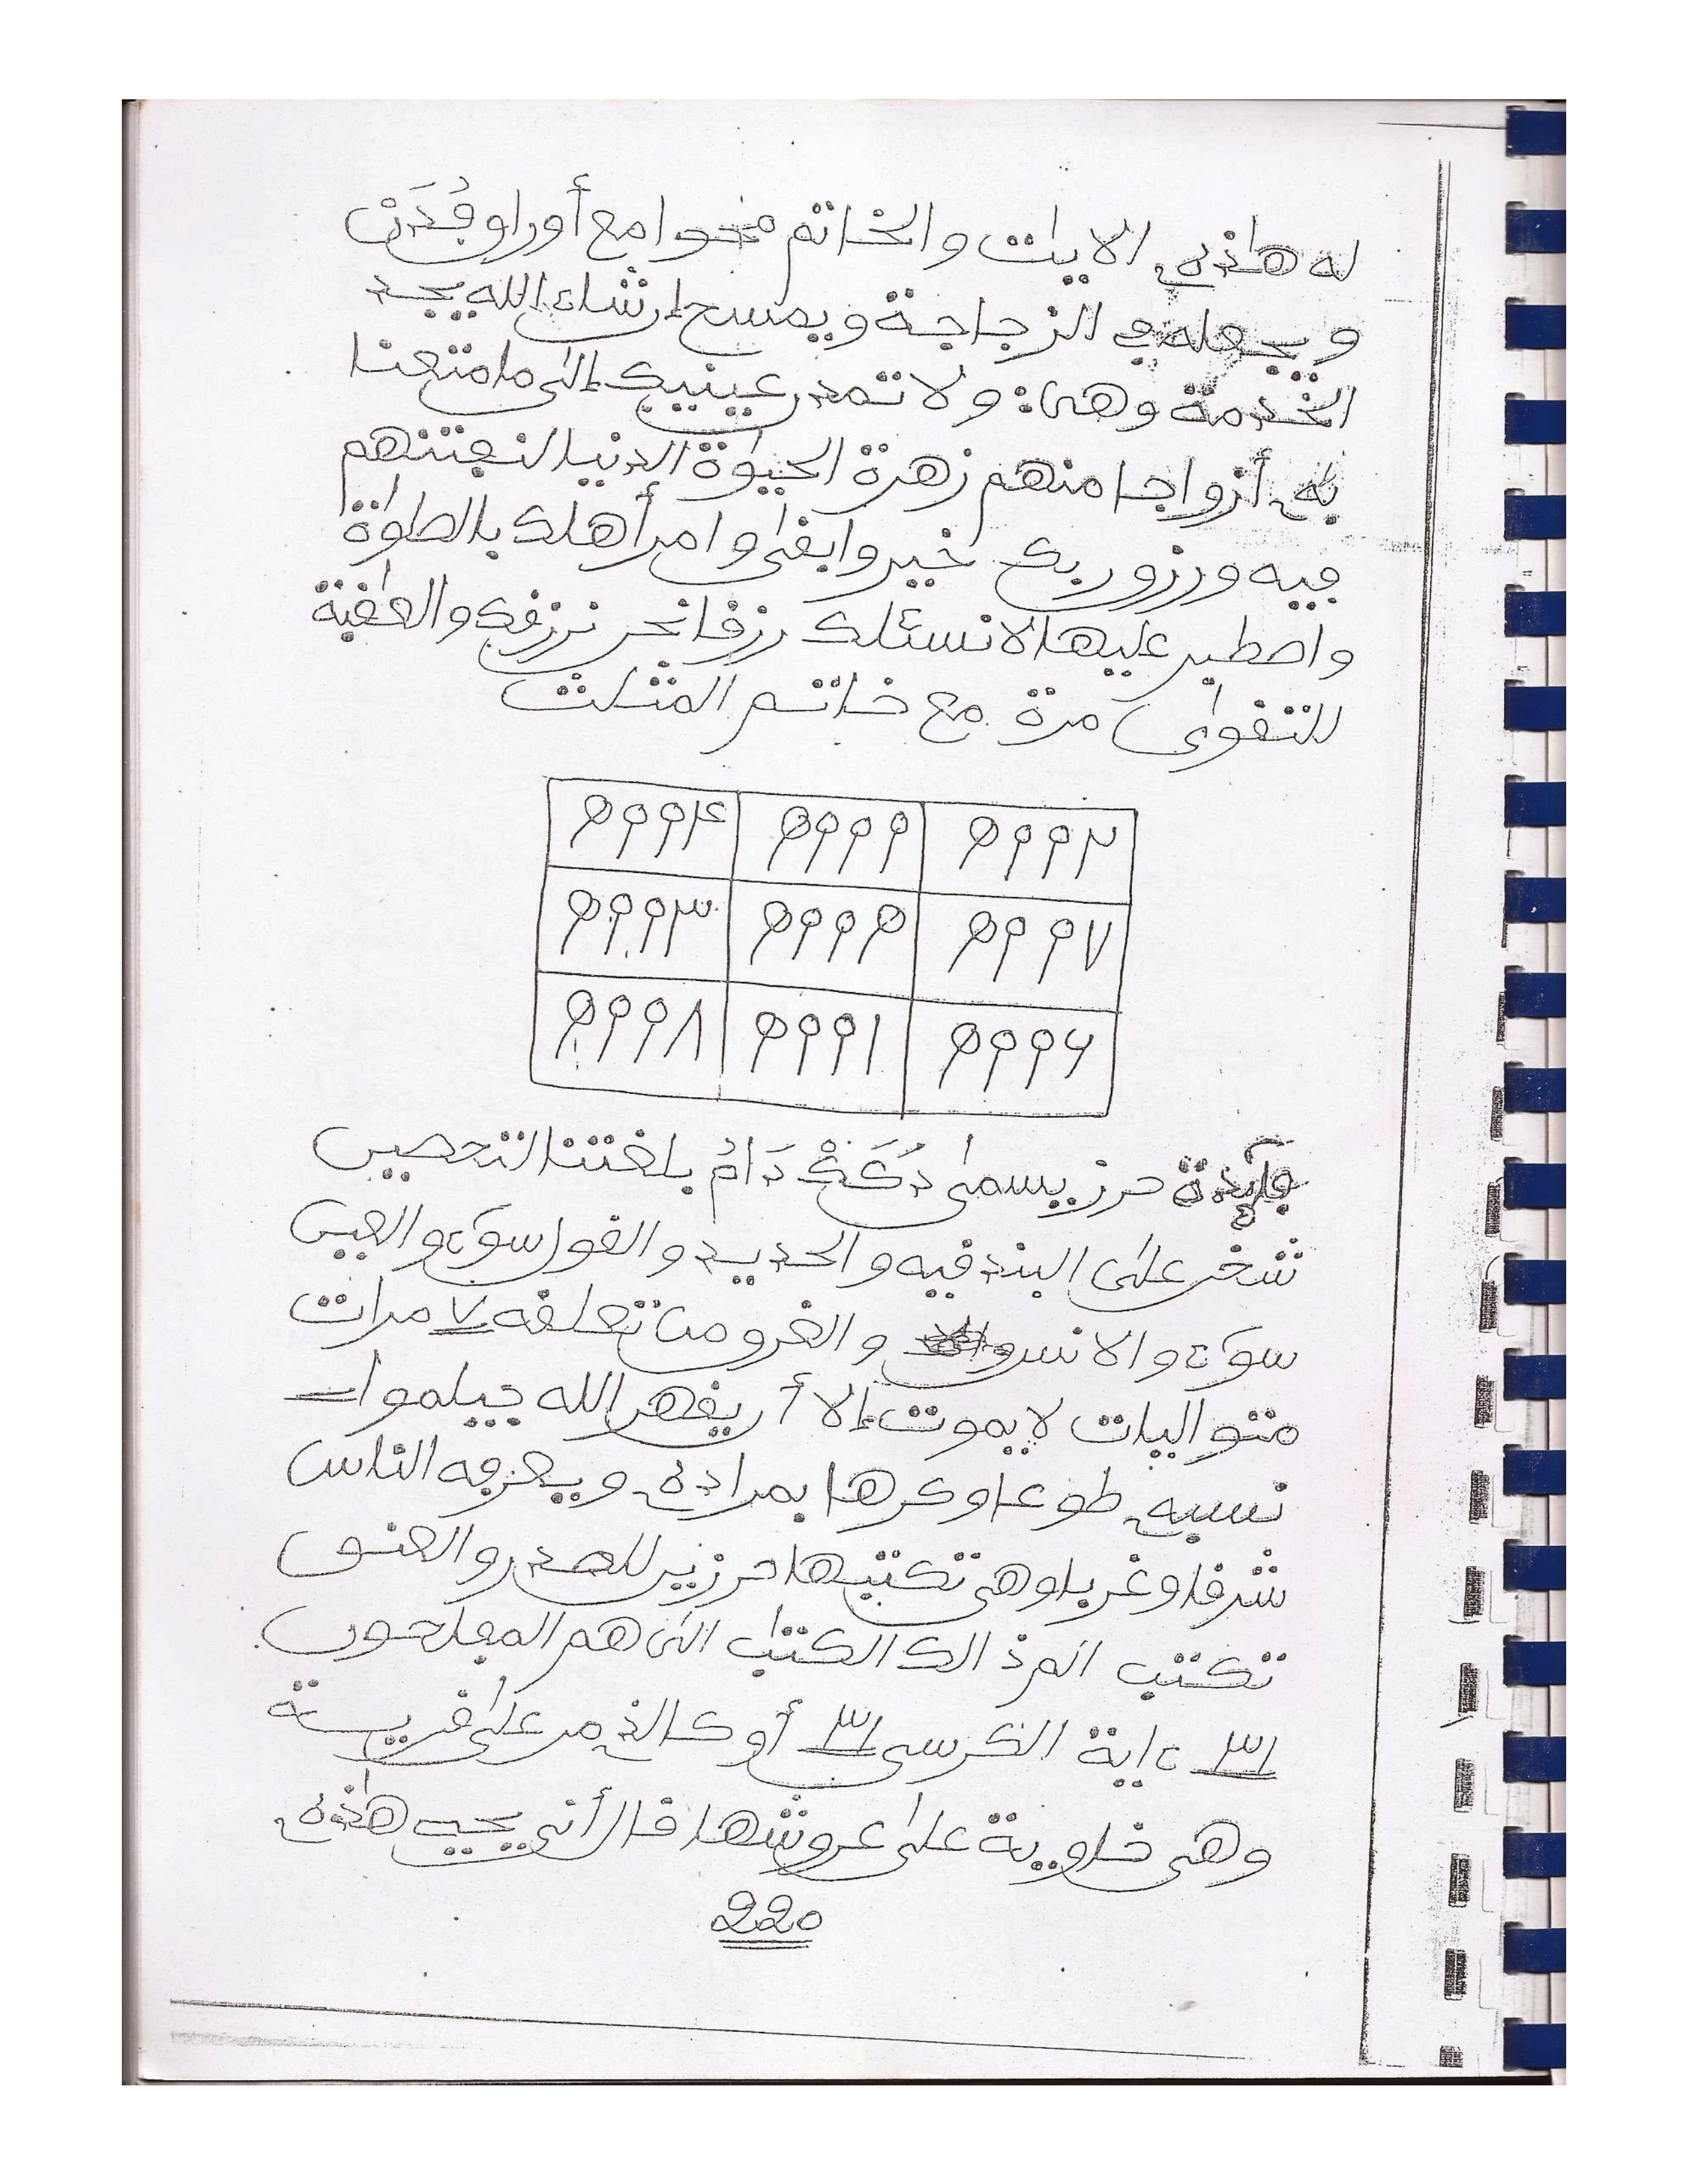 له هاذه الايات والخاتم محوا مع أوراو فَدَن
ويجعله في الزجاجة ويمسح إن شاء الله يجد
الخدمة وهي: ولا تمدن عينيك إلى ما متعنا
به أزواجا منهم زهرة الحيوة الدنيا لنفتنهم
فيه ورزق ربك خير وابقى وامر أهلك بالصلوة
واصطبر عليها لا نسئلك رزقا نحن نرزقك والعقبة
للتقوى مرة مع خاتم المثلث
٩٩٩٤ ٩٩٩٩ ٩٩٩٢
٩٩٩٣ ٩٩٩٥ ٩٩٩٧
٩٩٩٨ ٩٩٩١ ٩٩٩٦
فايدة حرز يسمى دَام بلغتنا التحصين
على البندقيه والحديد والقول سوء والعين
سوء والانس والغرق من تعلقه ٧ مرات
متواليات لا يموت إلا أن يقهر الله
نسبه طوعا وكرها بمراده ويعرفه الناس
شرقا وغربا وهي تكتبها حرزين للصدر والعنق
تكتب الم ذالك الكتب الى هم المفلحون
٣١ ءاية الكرسي ٣١ أو كالذ مر على قرية
وهي خاوية على عروشها قال أنى يحي هذه
220